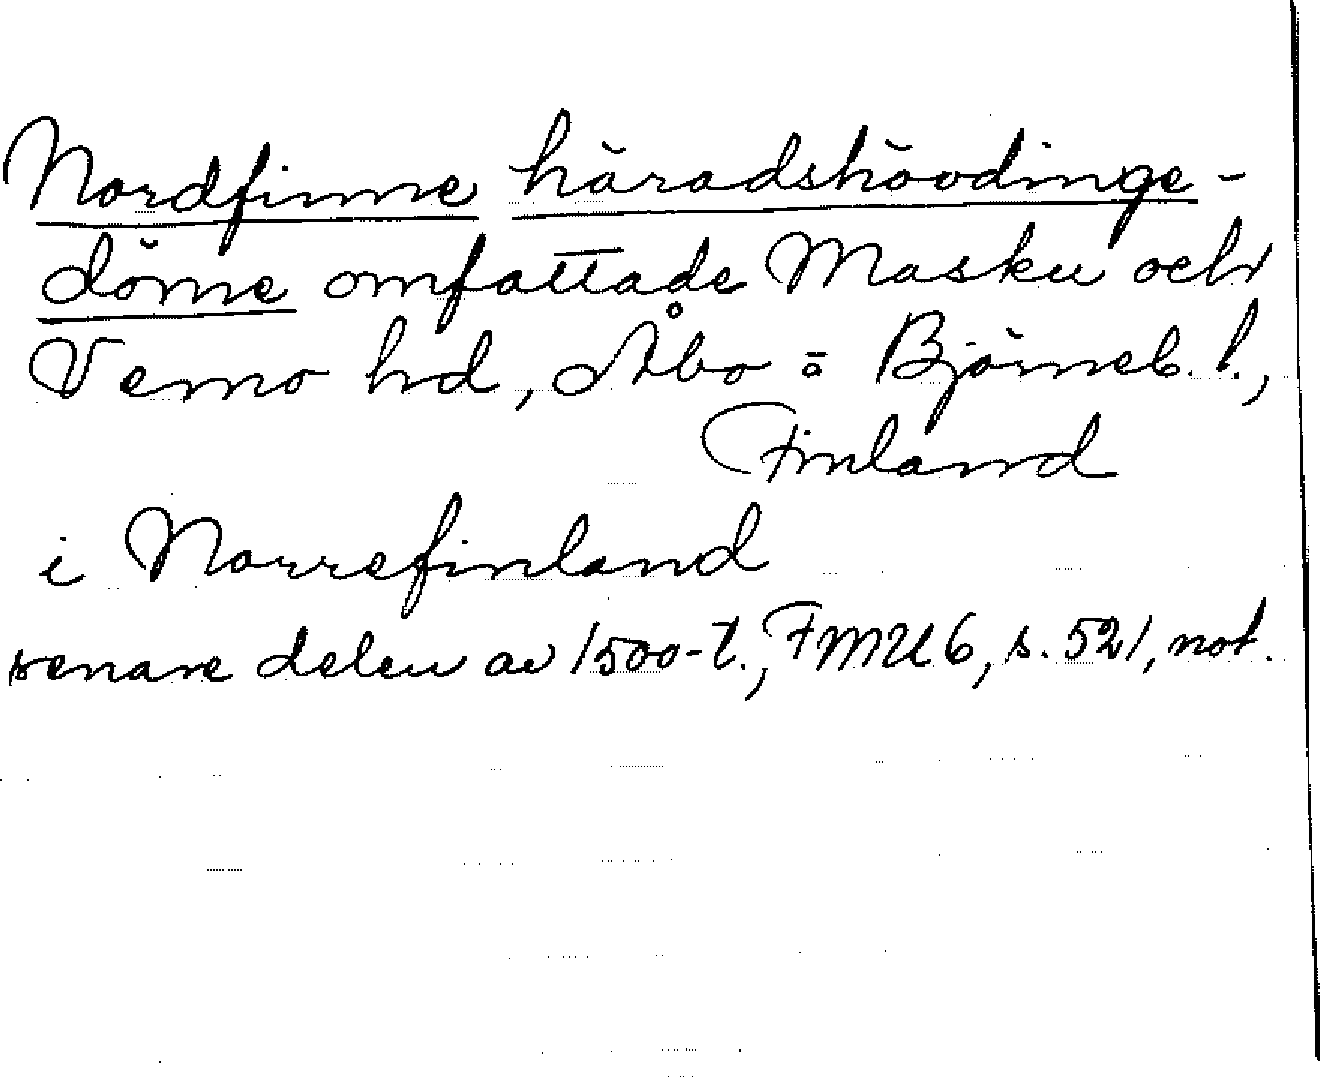 Nordfinne häradshövdinge-
döme omfattade Masku och
Vemo hd, Åbo o Björneb. l.,
Finland
i Norrefinland
senare delen av 1500-t., FMU 6, s. 521, not.